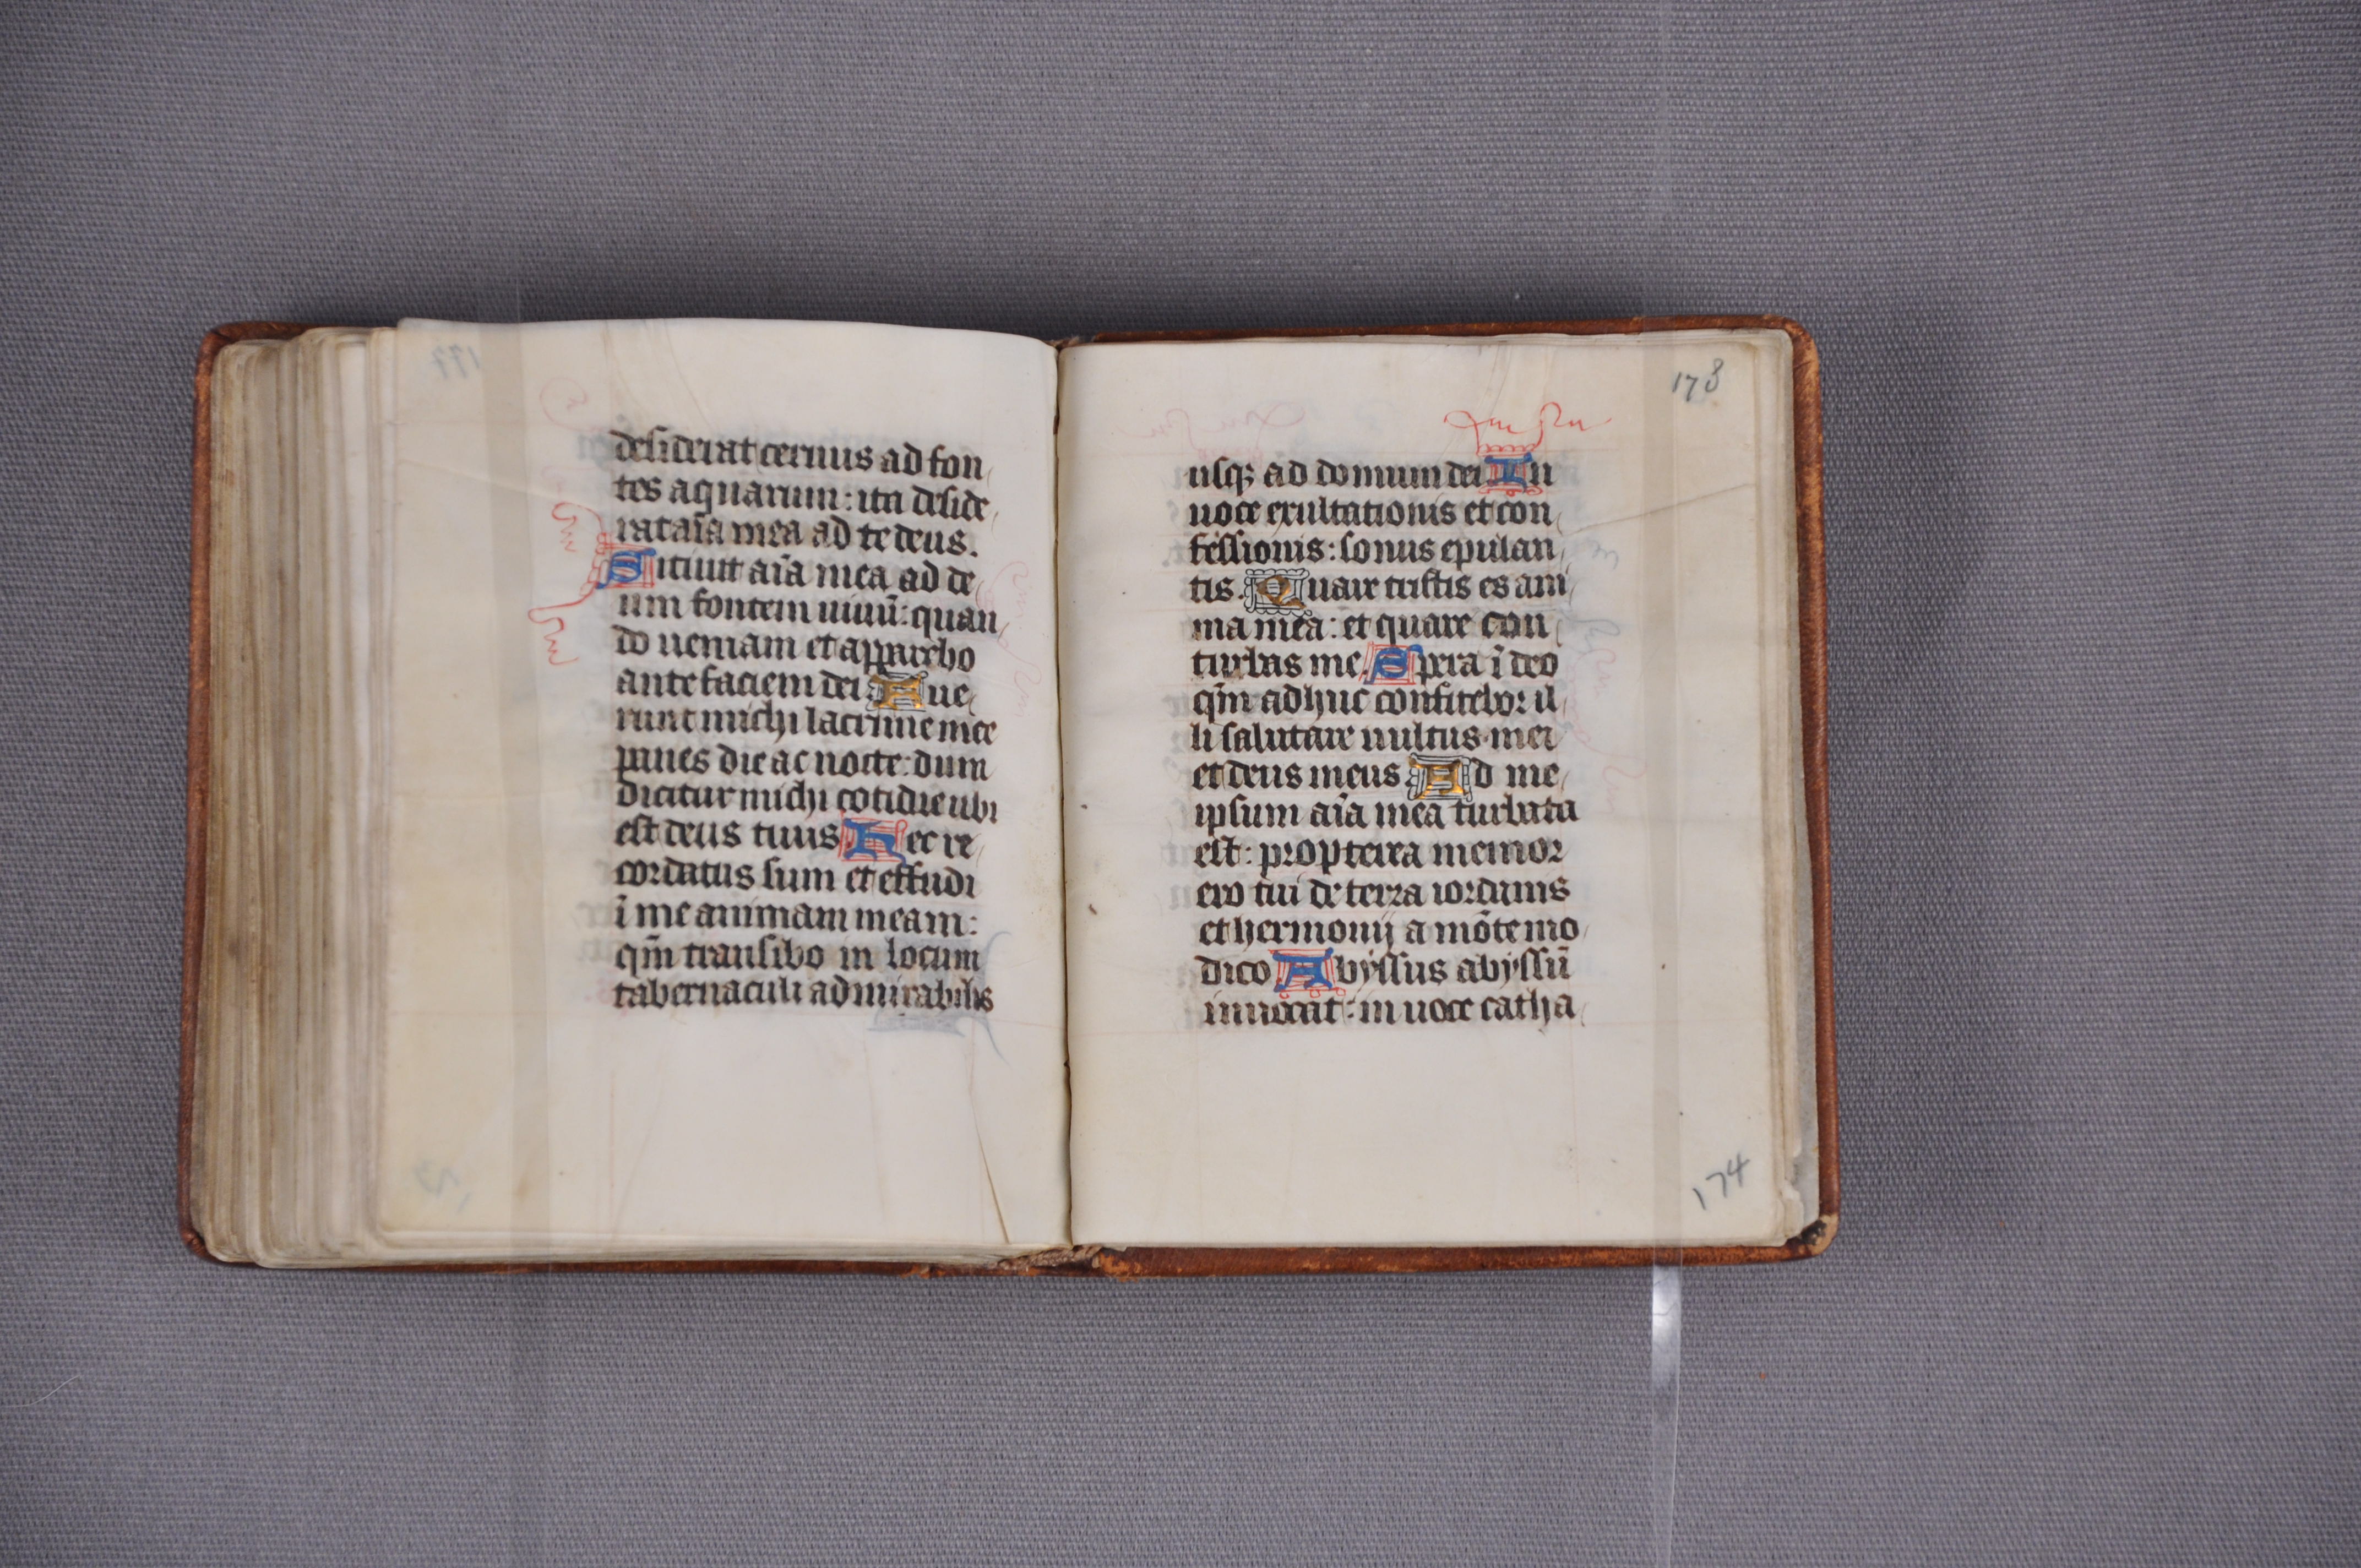 desiderat ceruus ad fon
tes aquarum: ita deside
rat aīa mea ad te deus.
Sitiuit aīa mea ad de
um fontem uiuū: quan
do ueniam et apparebo
ante faciem dei. Fue
runt michi lacrime mee
panes die ac nocte: dum
dicitur michi cotidie ubi
est deus tuus. Hec re
cordatus sum et effudi
ī me animam meam:
qm̄ transibo in locum
tabernaculi admirabilis
178
usqꝫ ad domum dei. In
uoce exultationis et con
fessionis: sonus epulan
tis. Quare tristis es ani
ma mea: et quare con
turbas me. Spera ī deo
qm̄ adhuc confitebor il
li salutare uultus mei
et deus meus. Ad me
ipsum aīa mea turbata
est: propterea memor
ero tui de terra iordanis
et hermonij a mōte mo
dico. Abyssus abyssū
inuocat: in uoce catha
174